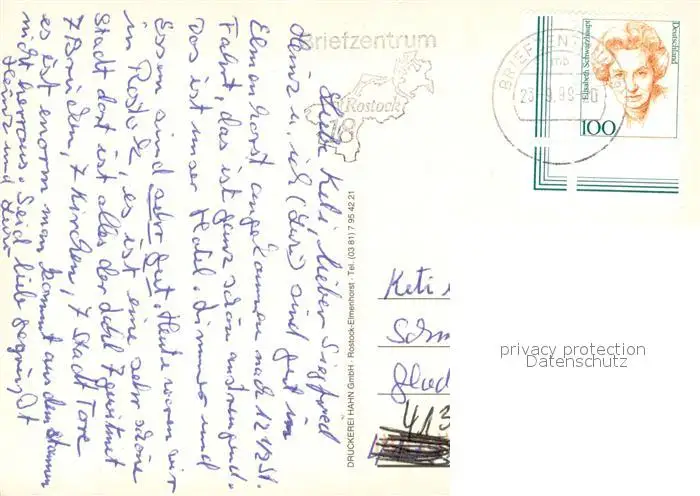 Briefzentrum
Rostock
18
BRIEFZENTRUM
23.9.99-20
Deutschland
Elisabeth Schwarzhaupt
100
Liebe Keti, lieber Siegfried
Heinz u. ich (Lisi) sind gut in
Elmenhorst angekommen nach 12 1/2 St.
Fahrt, das ist ganz schön anstrengend.
Das ist unser Hotel. Zimmer und
Essen sind sehr gut. Heute waren wir
in Rostock, es ist eine sehr schöne
Stadt dort ist alles der Zahl 7 gewidmet
7 Brücken, 7 Kirchen, 7 Stadt Tore
es ist enorm man kommt aus dem Staunen
nicht herraus. Seid lieb gegrüßt
Heinz und Lisi
DRUCKEREI HAHN GmbH · Rostock-Elmenhorst · Tel. (03 81) 7 95 42 21
Keti
Schm
Glad
413
privacy protection
Datenschutz